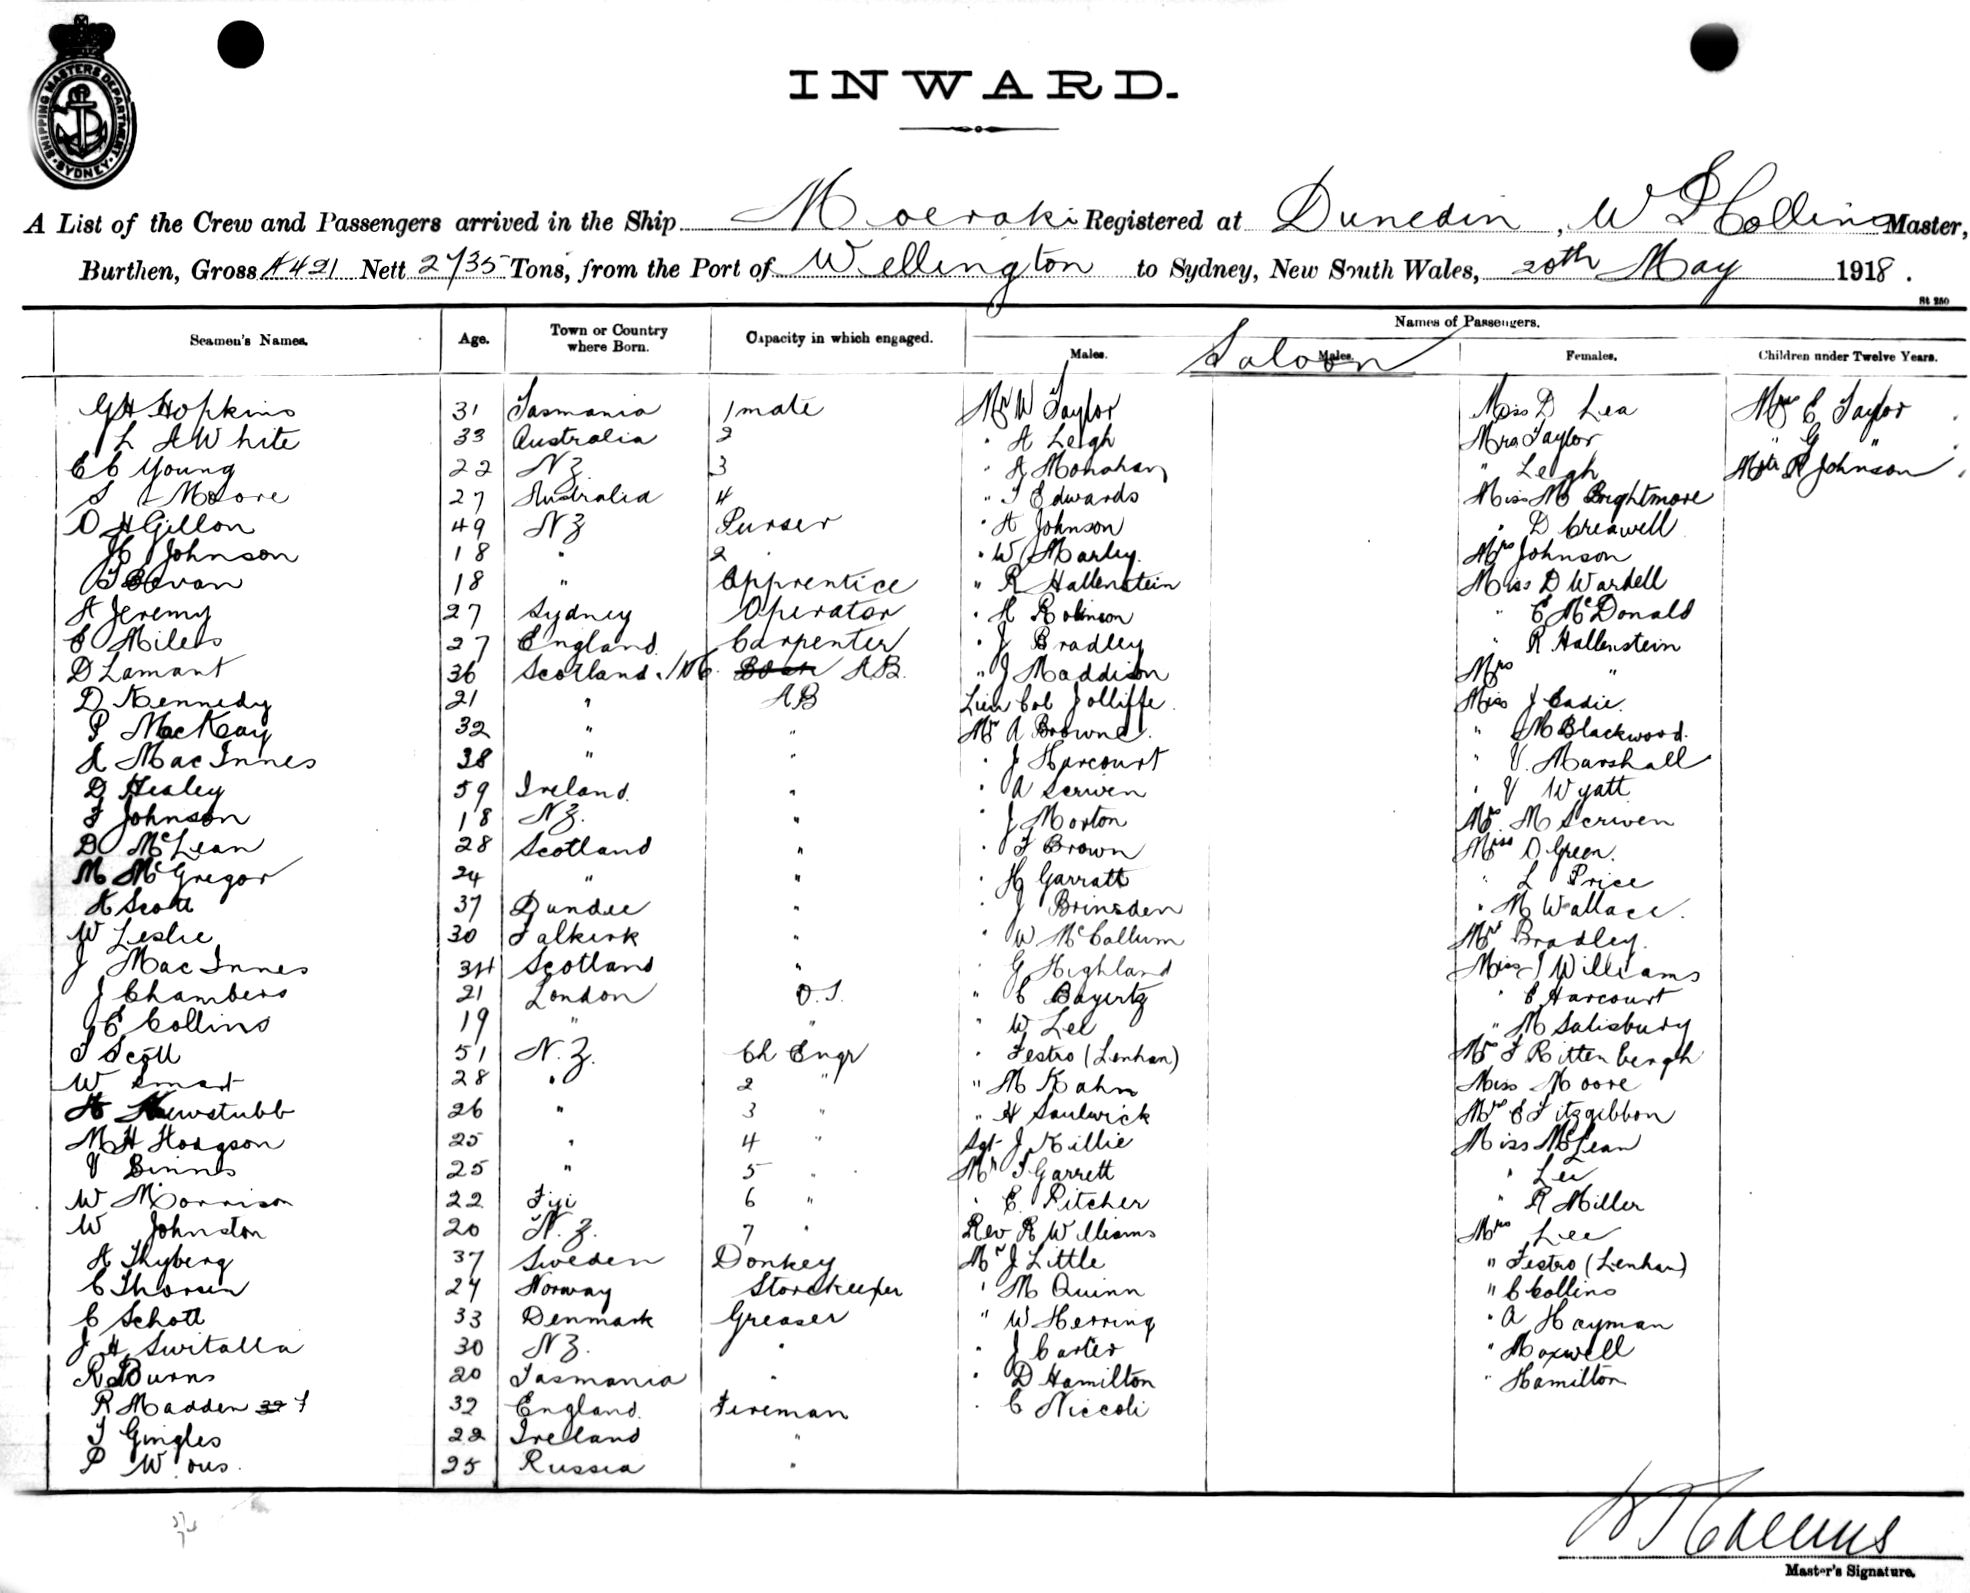 SHIPPING MASTERS DEPARTMENT SYDNEY
INWARD.
A List of the Crew and Passengers arrived in the Ship Moeraki Registered at Dunedin, W J Collins Master,
Burthen, Gross 4421 Nett 2735 Tons, from the Port of Wellington to Sydney, New South Wales, 20th May 1918.
St 250
Seamen's Names. Age. Town or Country where Born. Capacity in which engaged. Names of Passengers.
Males. Saloon Males. Females. Children under Twelve Years.
G H Hopkins 31 Tasmania 1 mate Mr W Taylor Miss D Lea E Taylor
L A White 33 Australia 2 " A Leigh Mrs Taylor " G "
C C Young 22 N Z. 3 " A Monahan " Leigh Mstr R Johnson
S Moore 27 Australia 4 " T Edwards Miss M Brightmore
D H Gillon 49 N Z Purser " A Johnson " D Creawell
H Johnson 18 " 2 " " W Marley. Mrs Johnson
T Bevan 18 " Apprentice " R Hallenstein Miss D Wardell
A Jeremy 27 Sydney Operator " H Robinson " E McDonald
E Miles 27 England. Carpenter " J Bradley " R Hallenstein
D Lamant 36 Scotland. AB. " J Maddison Mrs "
D Kennedy 21 " AB Lieu Col Jolliffe. Miss J Eadie.
P MacKay 32 " " Mr A Browne. " M Blackwood.
A MacInnes 38 " " " J Harcourt " V. Marshall
D Healey 59 Ireland. " " A Scriven " V Wyatt
F Johnson 18 N Z. " " J Morton Mrs M Scriven
D McLean 28 Scotland " " F Brown Miss D Green.
M McGregor 24 " " " H Garratt " L Price
A Scott 37 Dundee " " J Brinsden " M Wallace.
W Leslie 30 Falkirk " " W McCallum Mrs Bradley.
J MacInnes 34 Scotland " " G Highland Miss J Williams
J Chambers 21 London O.S. " C Bayertz " E Harcourt
E Collins 19 " " " W Lee " M Salisbury
T Scott 51 N. Z. Ch Engr " Festro (Lenhan) Mrs F Rittenbergh
W Smart 28 " 2 " " M Kahn Miss Moore
A Newstubb 26 " 3 " " H Saulwick Mrs E Fitzgibbon
M H Hodgson 25 " 4 " Sgt J Killie Miss McLean
V Binns 25 " 5 " Mr T Garrett " Lee
W Morrison 22 Fiji 6 " " E. Pitcher " R Miller
W Johnston 20 N. Z. 7 " Rev R Williams Mrs Lee
A Thyberg 37 Sweden Donkey Mr J Little " Festro (Lenhan)
C Thorsen 24 Norway Storekeeper " M Quinn " C Collins
C Schott 33 Denmark Greaser " W Herring " A Hayman
J H Switalla 30 N Z. " " J Carter " Maxwell
R Burns 20 Tasmania " " D Hamilton " Hamilton
R Madden 32 England. Fireman " C Niccoli
T Gingles 22 Ireland "
P 25 Russia "
W J Collins
Master's Signature.